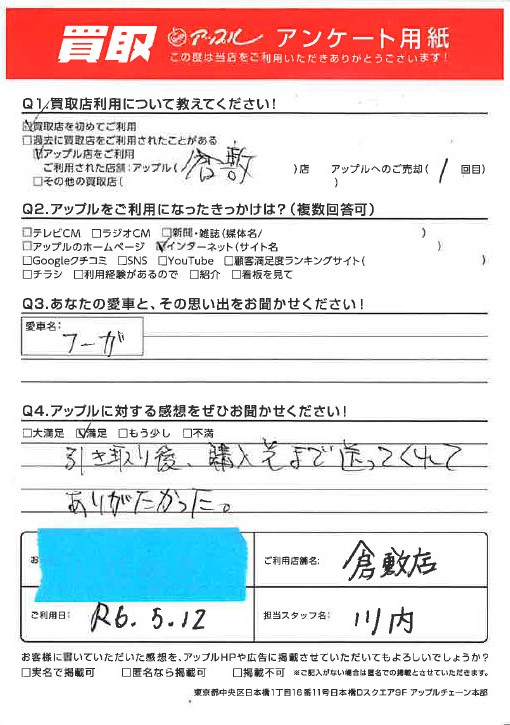 買取 アップル アンケート用紙
この度は当店をご利用いただきありがとうございます！
Q1.買取店利用について教えてください！
☑買取店を初めてご利用
□過去に買取店をご利用されたことがある
☑アップル店をご利用
ご利用された店舗：アップル（倉敷）店 アップルへのご売却（1回目）
□その他の買取店（ ）
Q2.アップルをご利用になったきっかけは？（複数回答可）
□テレビCM □ラジオCM □新聞・雑誌（媒体名/ ）
□アップルのホームページ ☑インターネット（サイト名 ）
□Googleクチコミ □SNS □YouTube □顧客満足度ランキングサイト（ ）
□チラシ □利用経験があるので □紹介 □看板を見て
Q3.あなたの愛車と、その思い出をお聞かせください！
愛車名：
フーガ
Q4.アップルに対する感想をぜひお聞かせください！
□大満足 ☑満足 □もう少し □不満
引き取り後、購入先まで送ってくれて
ありがたかった。
お
ご利用店舗名： 倉敷店
ご利用日： R6.5.12
担当スタッフ名： 川内
お客様に書いていただいた感想を、アップルHPや広告に掲載させていただいてもよろしいでしょうか？
□実名で掲載可 □匿名なら掲載可 □掲載不可 ※ご記入がない場合は匿名での掲載とさせていただきます。
東京都中央区日本橋1丁目16番11号日本橋Dスクエア9F アップルチェーン本部